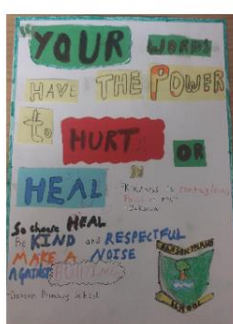 "YOUR WORDS
HAVE THE POWER
to HURT OR
HEAL"
So choose HEAL
Be KIND and RESPECTFUL
MAKE A NOISE
AGAINST BULLYING
Primary School
SCHOOL